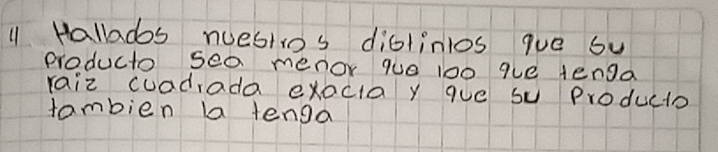 4 Hallados nuestros distintos que su
producto sea menor que 100 que tenga
raiz cuadrada exacta y que su Producto
tambien la tenga